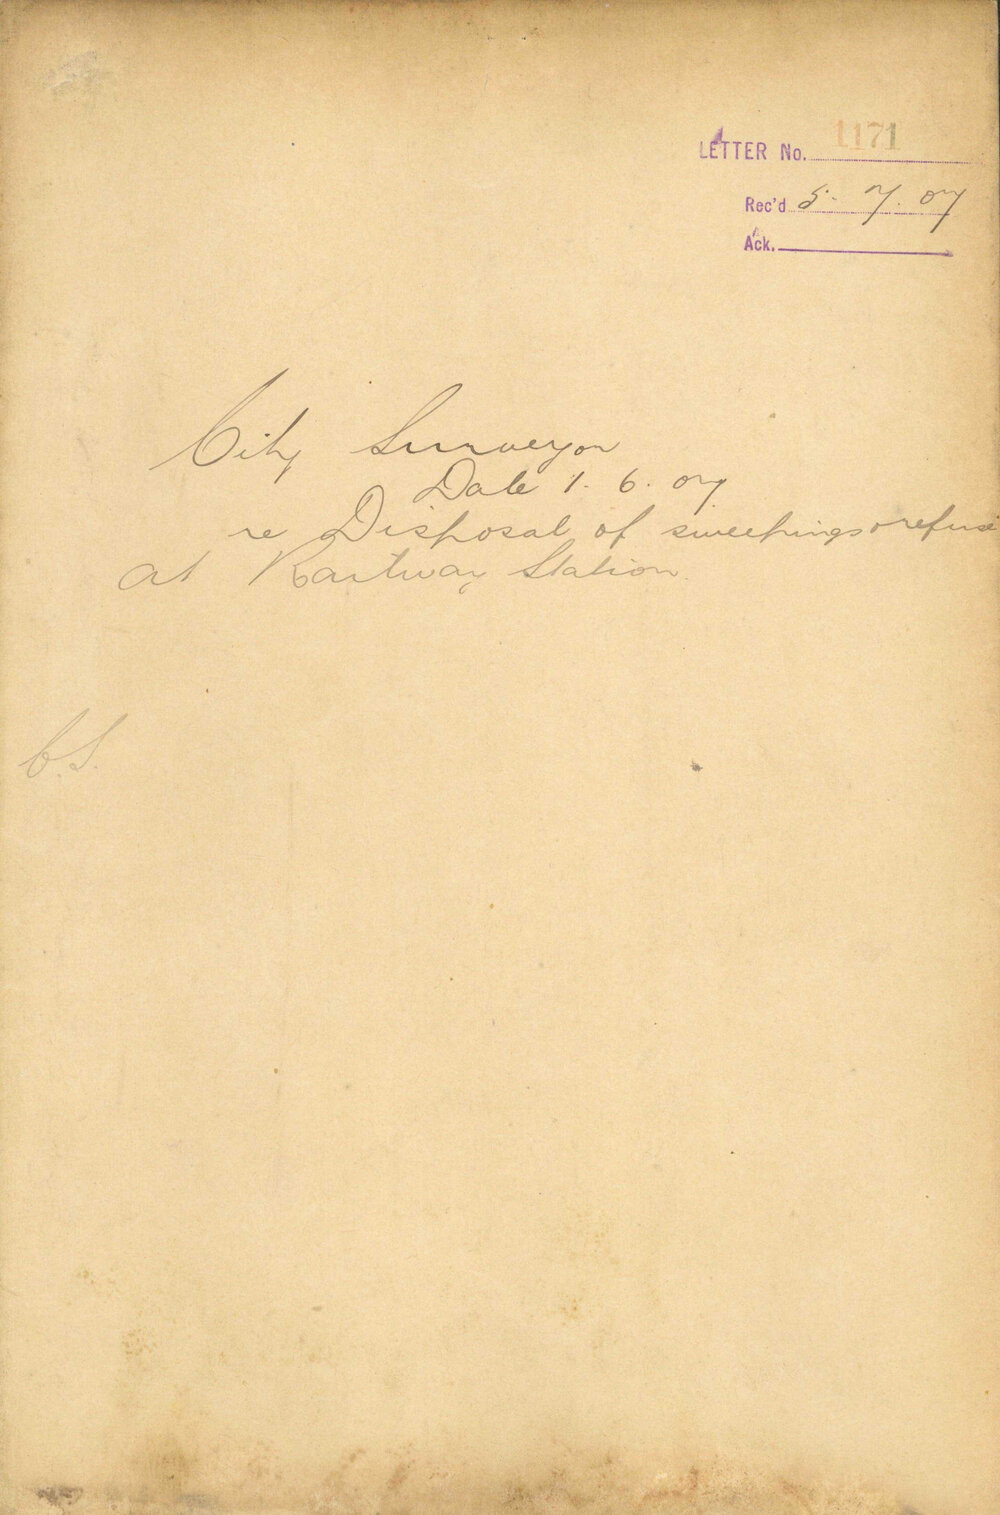 LETTER No. 1171
Rec'd 5. 7. 07
Ack.
City Surveyor
Date 1. 6. 07
re Disposal of sweepings & refuse
at Railway Station.
C.S.